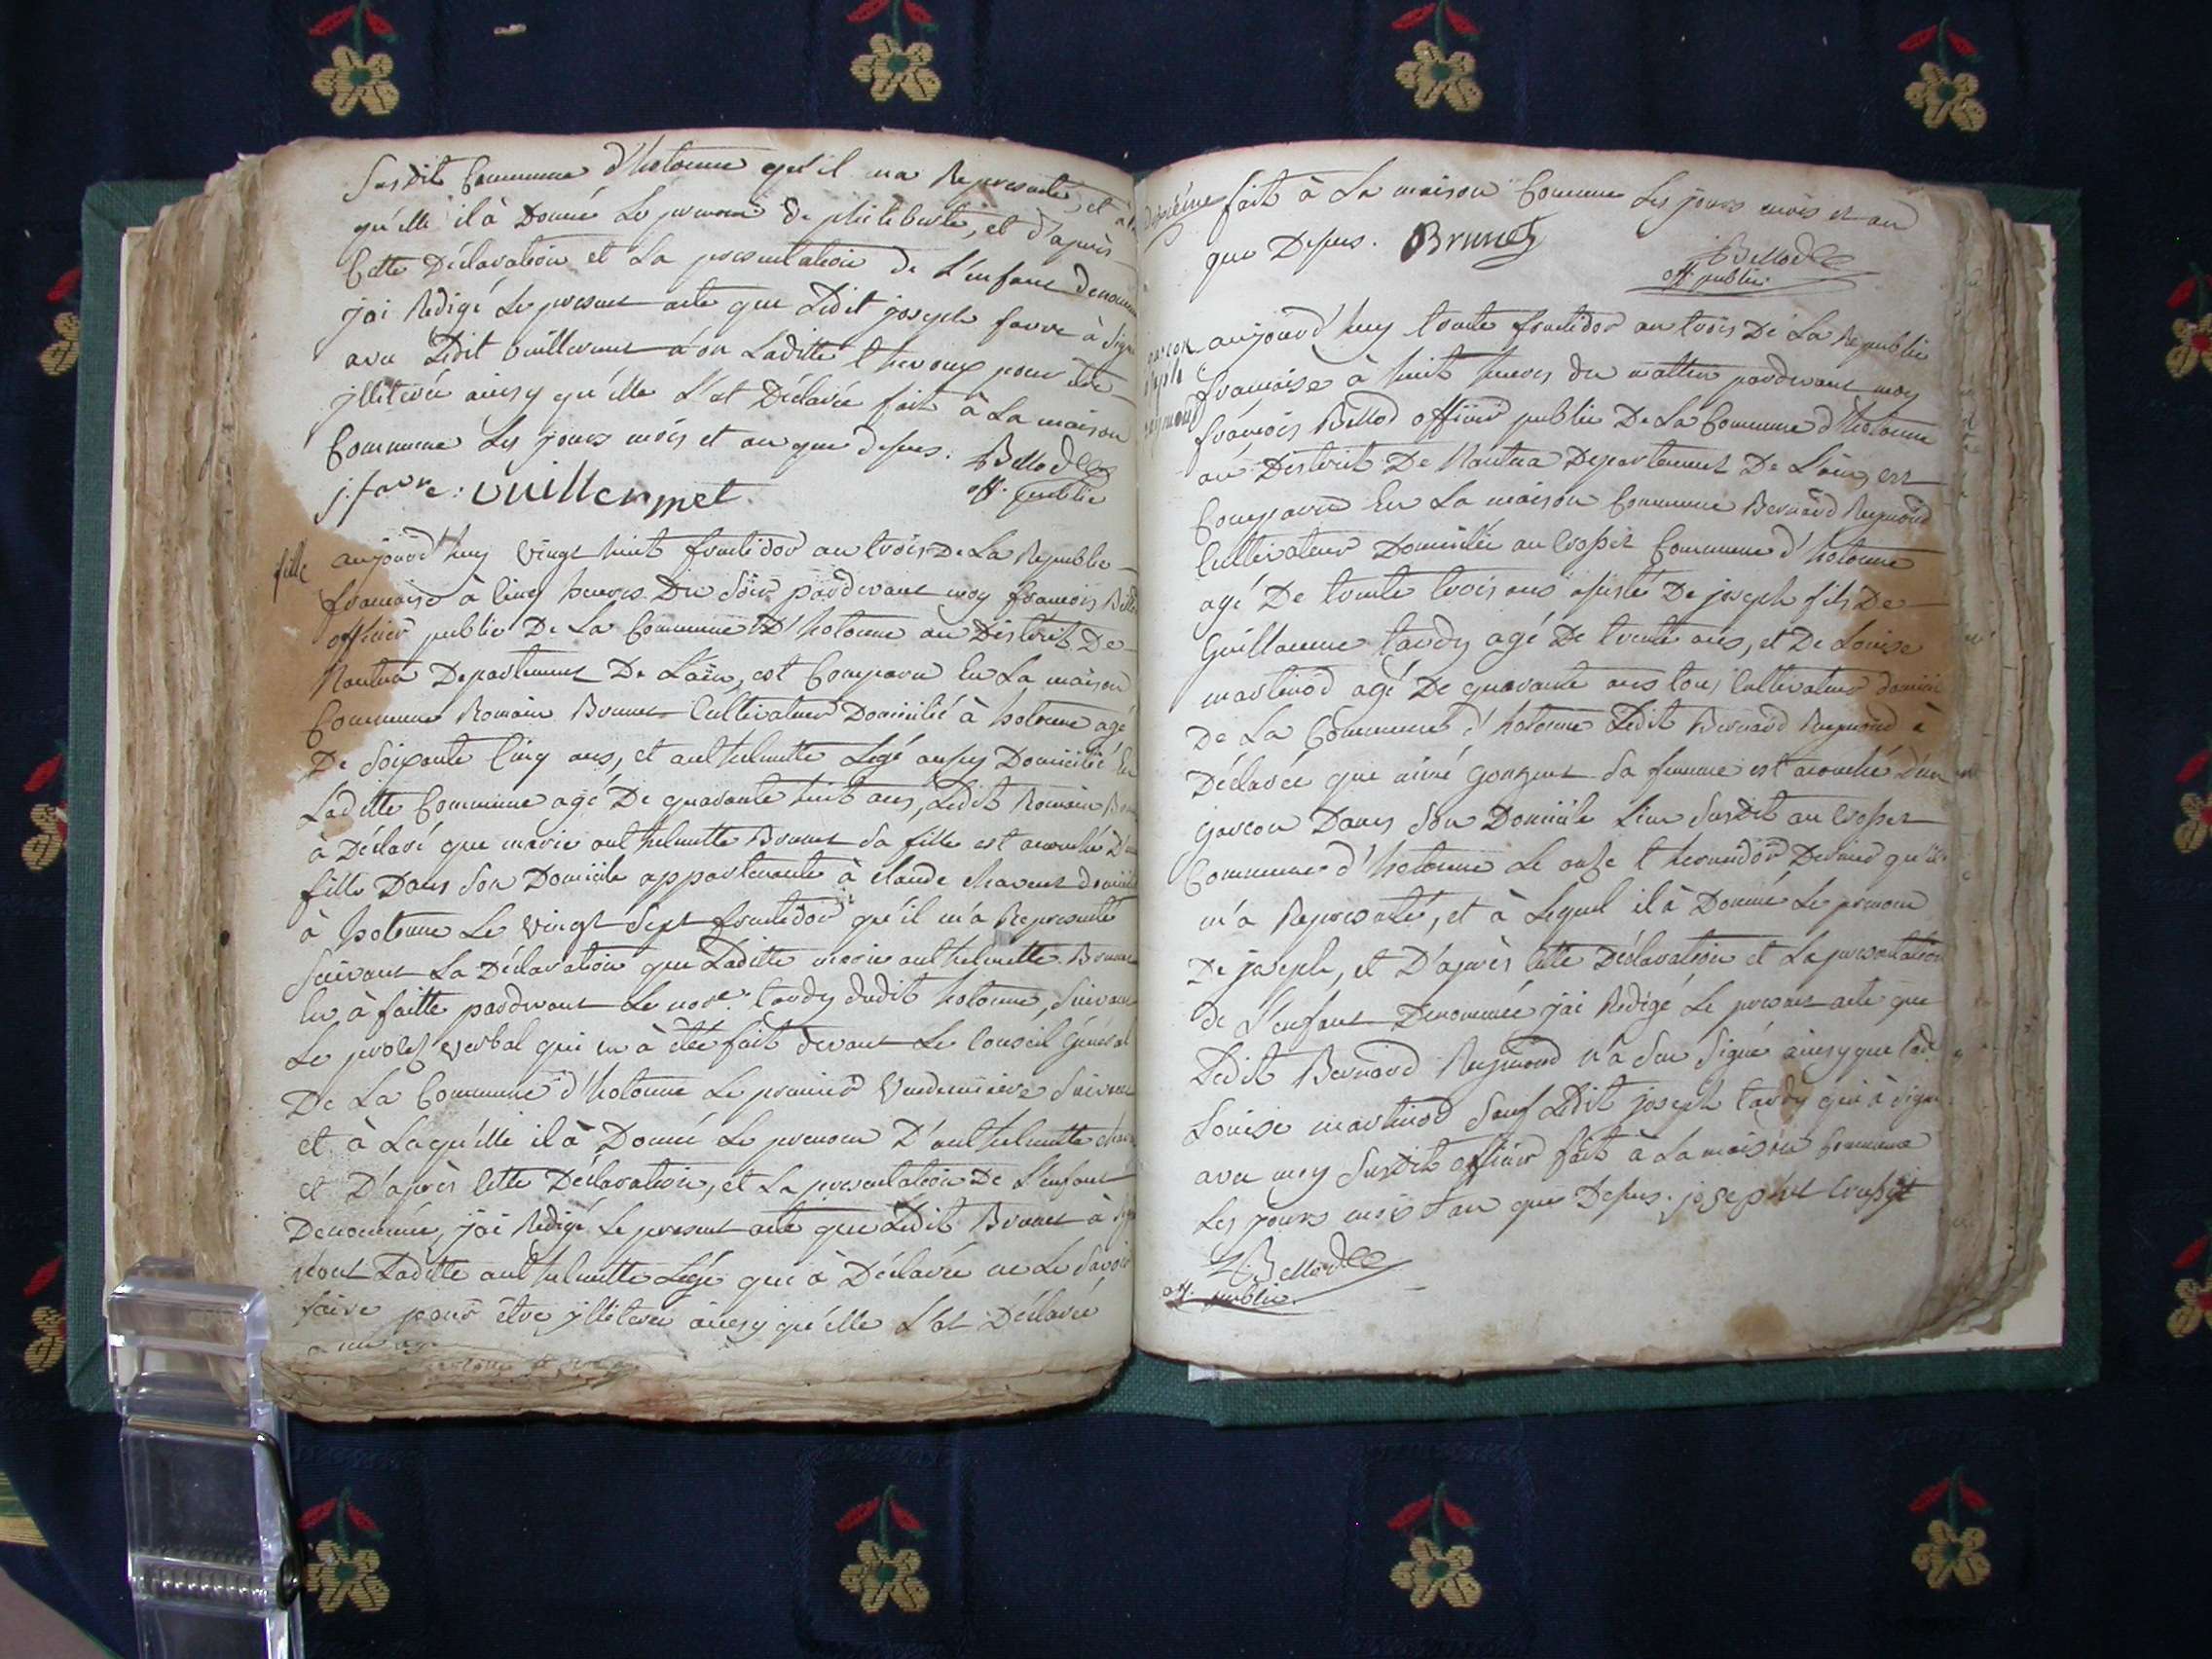 Susdit Commune d'hotonne qu'il ma Representé, et à la
qu'elle il à Donné Le prenom de philiberte, et d'après
Cette Déclaration et La presentation de L'enfant denommé
jai Redigé Le present acte que Ledit joseph favre à Signé
avec Ledit Vuillermet Laditte thevoux pour être
jlliterée ainsy qu'elle L'at Déclarée fait à La maison
Commune Les jours mois et an que desus.
Bellod
off. public
j: favre: Vuillermet
fille
aujourd'huy Vingt huit fructidor an trois De La Republic
francaise à Cinq heures Du Soir pardevant moy francois Bellod
officier public De La Commune D'hotonne au District De
Nantua Departement De Lain, est Comparu En La maison
Commune Romain Brunet Cultivateur Domicilié à hotonne agé
De Soixante Cinq ans, et anthelmette Legé aussy Domiciliée En
Laditte Commune agé De quarante huit ans, Ledit Romain
à Déclaré que marie anthelmette Brunet Sa fille est acouchée D'une
fille Dans Son Domicile appartenante à Claude Chavent
à hotonne Le Vingt Sept fructidor qu'il m'a Representé
Suivant La Déclaration que Laditte marie anthelmette Brunet
En à faitte pardevant Le no.re tardy dudit hotonne, Suivant
Le procez Verbal qui en à été fait devant Le Conseil Général
De La Commune d'hotonne Le premier Vendemiaire Suivant
et à Laquelle il à Donné Le prenom D'anthelmette
et D'après Cette Déclaration, et La presentation De L'enfant
Denommée, jai Redigé Le present acte que Ledit Brunet à Signé
Laditte anthelmette Legé qui à Déclarée ne Le Savoir
faire pour être jlliteree ainsy qu'elle L'at Déclarée
fait à La maison Commune Les jours mois et an
que Desus. Brunet
Bellod
off. public
garcon
joseph
Reymond
aujourd'huy trente fructidor an trois De La Republic
francaise à huit heures du mattin pardevant moy
francois Bellod officier public De La Commune d'hotonne
au District De Nantua Departement De Lain, est
Comparu En La maison Commune Bernard Reymond
Cultivateur Domicilié au Crosset Commune d'hotonne
agé De trente trois ans asisté De joseph fils De
Guillaume tardy agé De trente ans, et De Louise
martinod agé De quarante ans tous Cultivateurs
De La Commune d'hotonne Ledit Bernard Reymond à
Déclarée que Sa femme est acouchée d'un
garcon Dans Son Domicile Lieu Susdit au Crosset
Commune d'hotonne Le onze thermidor Dernier qu'il
m'a Representé, et à Lequel il à Donné Le prenom
De joseph, et D'après Cette Déclaration et La presentation
de L'enfant Denommée jai Redigé Le present acte que
Ledit Bernard Reymond n'a Seu Signé ainsy que
Louise martinod Sauf Ledit joseph tardy qui à Signé
avec moy Susdit officier fait à La maison Commune
Les jours mois et an que Desus.
Bellod
off. public